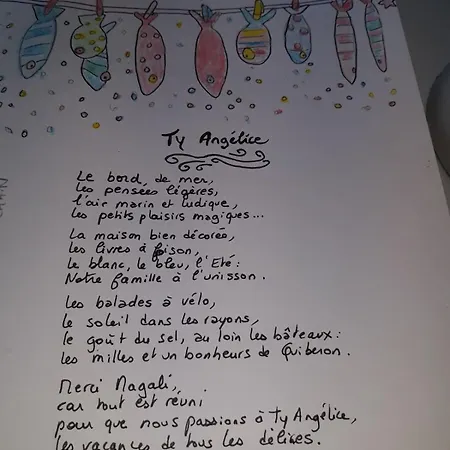 Ty Angélice
Le bord de mer,
Les pensées légères,
l'air marin et ludique,
les petits plaisirs magiques...
La maison bien décorée,
les livres à foison,
le blanc, le bleu, l'Eté:
Notre famille à l'unisson.
les balades à vélo,
le soleil dans les rayons,
le goût du sel, au loin les bâteaux:
les milles et un bonheurs de Quiberon.
Merci Magali,
car tout est réuni
pour que nous passions à Ty Angélice,
les vacances de tous les délices.